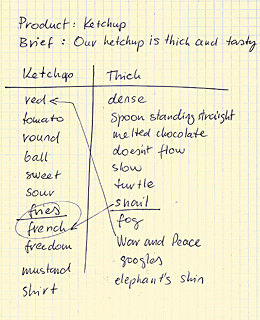 Product: Ketchup
Brief: Our ketchup is thick and tasty
Ketchup Thick
red dense
tomato Spoon standing straight
round melted chocolate
ball doesn't flow
sweet slow
sour turtle
fries snail
french fog
freedom War and Peace
mustand googles
shirt elephant's skin